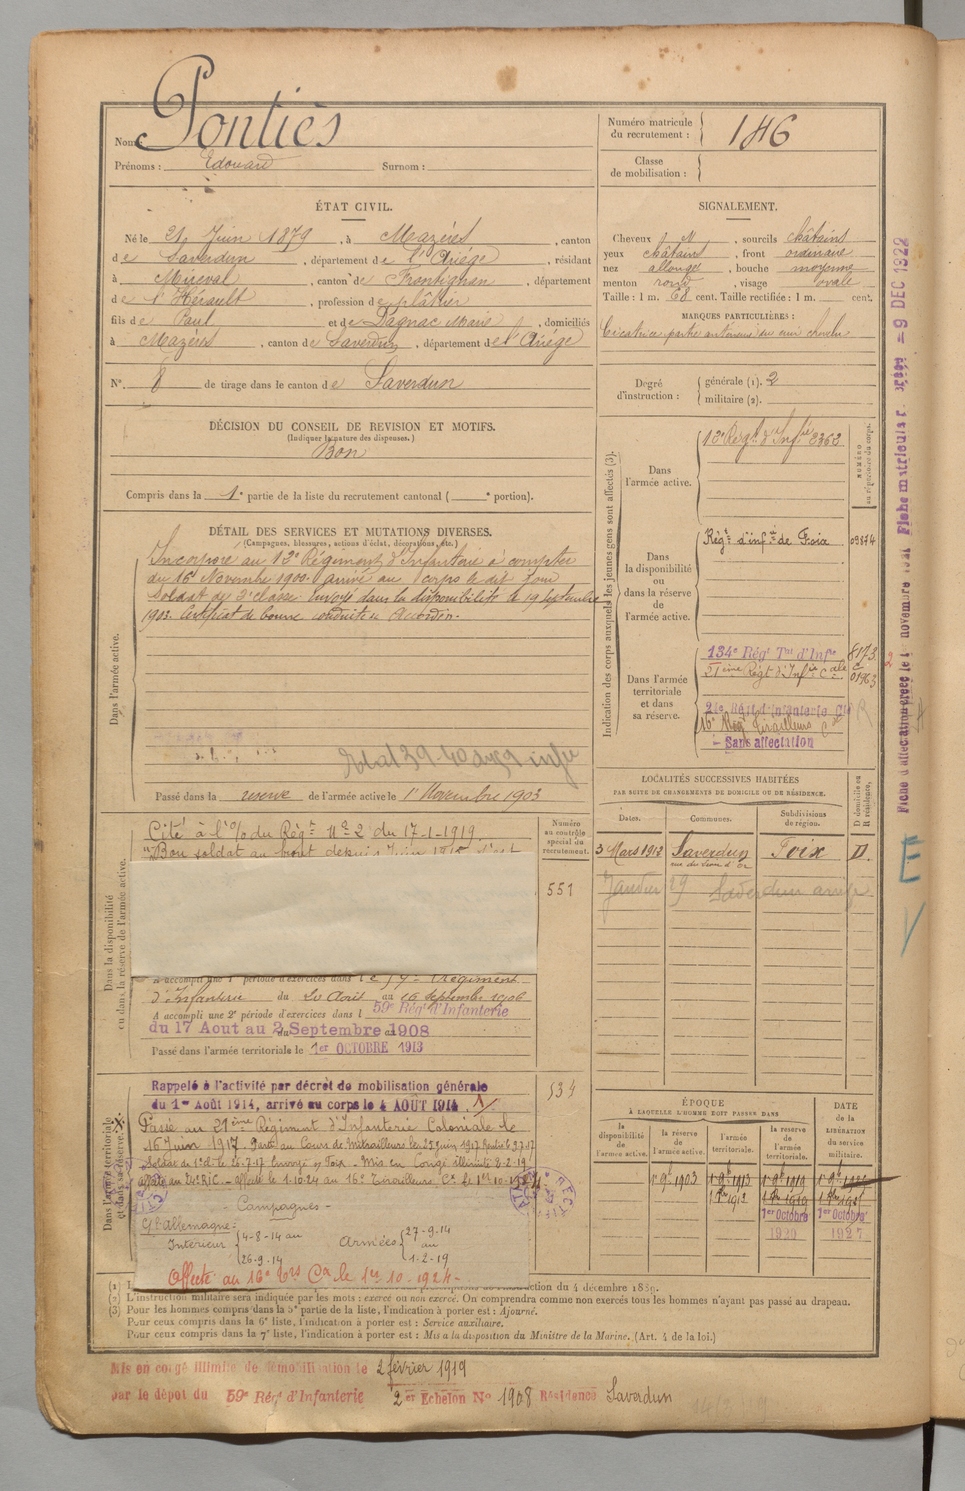 Nom : Pontiès
Prénoms : Edouard Surnom :
Numéro matricule du recrutement : 146
Classe de mobilisation :
ÉTAT CIVIL.
Né le 21 Juin 1879, à Mazères, canton
de Saverdun, département de l'Ariège, résidant
à Mireval, canton de Frontignan, département
de l'Hérault, profession de plâtrier
fils de Paul et de Dagnac Marie, domiciliés
à Mazères, canton de Saverdun, département de l'Ariège
N° 8 de tirage dans le canton de Saverdun
SIGNALEMENT.
Cheveux, sourcils châtains
yeux châtains, front ordinaire
nez allongé, bouche moyenne
menton rond, visage ovale
Taille : 1 m. 68 cent. Taille rectifiée : 1 m. cent.
MARQUES PARTICULIÈRES :
Cicatrice partie antérieure du cuir chevelu
Degré d'instruction : générale (1). 2
militaire (2).
DÉCISION DU CONSEIL DE REVISION ET MOTIFS.
(Indiquer la nature des dispenses.)
Bon
Compris dans la 1e partie de la liste du recrutement cantonal ( e portion).
DÉTAIL DES SERVICES ET MUTATIONS DIVERSES.
(Campagnes, blessures, actions d'éclat, décorations, etc.)
Dans l'armée active.
Incorporé au 12e Régiment d'Infanterie à compter
du 16 Novembre 1900. arrivé au corps le dit jour
soldat de 2e classe. Envoyé dans la disponibilité le 19 Septembre
1903. Certificat de bonne conduite Accordé.
Passé dans la réserve de l'armée active le 1er Novembre 1903
Indication des corps auxquels les jeunes gens sont affectés (3).
NUMÉRO au répertoire du corps.
Dans l'armée active.
12e Régt d'Infie 8363
Dans la disponibilité ou dans la réserve de l'armée active.
Régt d'infie de Foix
Dans l'armée territoriale et dans sa réserve.
134e Régt Tal d'Infie 8173
21ème Régt d'Infie Cale 01963
21e Régt d'Infanterie Cle
16e Régt Tirailleurs
Sans affectation
LOCALITÉS SUCCESSIVES HABITÉES
PAR SUITE DE CHANGEMENTS DE DOMICILE OU DE RÉSIDENCE.
Dates. Communes. Subdivisions de région. D domicile ou R résidence.
3 Mars 1912 Saverdun Foix D.
Janvier 29 Saverdun
Dans la disponibilité ou dans la réserve de l'armée active.
Numéro au contrôle spécial du recrutement.
551
Cité à l'O/ du Régt N° 2 du 17-1-1919.
"Bon soldat au front depuis Juin
A accompli une 1re période d'exercices dans le 59e Régiment
d'Infanterie du 20 Août au 16 Septembre 1906
A accompli une 2e période d'exercices dans l 59e Régt d'Infanterie
du 17 Aout au 2 Septembre 1908
Passé dans l'armée territoriale le 1er OCTOBRE 1913
Dans l'armée territoriale et dans sa réserve.
534
Rappelé à l'activité par décret de mobilisation générale
du 1er Août 1914, arrivé au corps le 4 AOÛT 1914.
Passé au 21ème Régiment d'Infanterie Coloniale le
16 Juin 1917.
Campagnes
Ctre Allemagne:
Intérieur 4-8-14 au 26-9-14
Armées 27-9-14 au 1-2-19
Affecté au 16e Trs Cx le 1er 10-1924-
ÉPOQUE
À LAQUELLE L'HOMME DOIT PASSER DANS
la disponibilité de l'armée active. la réserve de l'armée active. l'armée territoriale. la réserve de l'armée territoriale.
DATE de la LIBÉRATION du service militaire.
1er 9bre 1903
1er Octobre 1920
1er Octobre 1927
ction du 4 décembre 1889.
(2) L'instruction militaire sera indiquée par les mots : exercé ou non exercé. On comprendra comme non exercés tous les hommes n'ayant pas passé au drapeau.
(3) Pour les hommes compris dans la 5e partie de la liste, l'indication à porter est : Ajourné.
Pour ceux compris dans la 6e liste, l'indication à porter est : Service auxiliaire.
Pour ceux compris dans la 7e liste, l'indication à porter est : Mis à la disposition du Ministre de la Marine. (Art. 4 de la loi.)
Mis en congé illimité de démobilisation le 2 février 1919
par le dépôt du 59e Régt d'Infanterie 2er Echelon No 1908 Résidence Saverdun